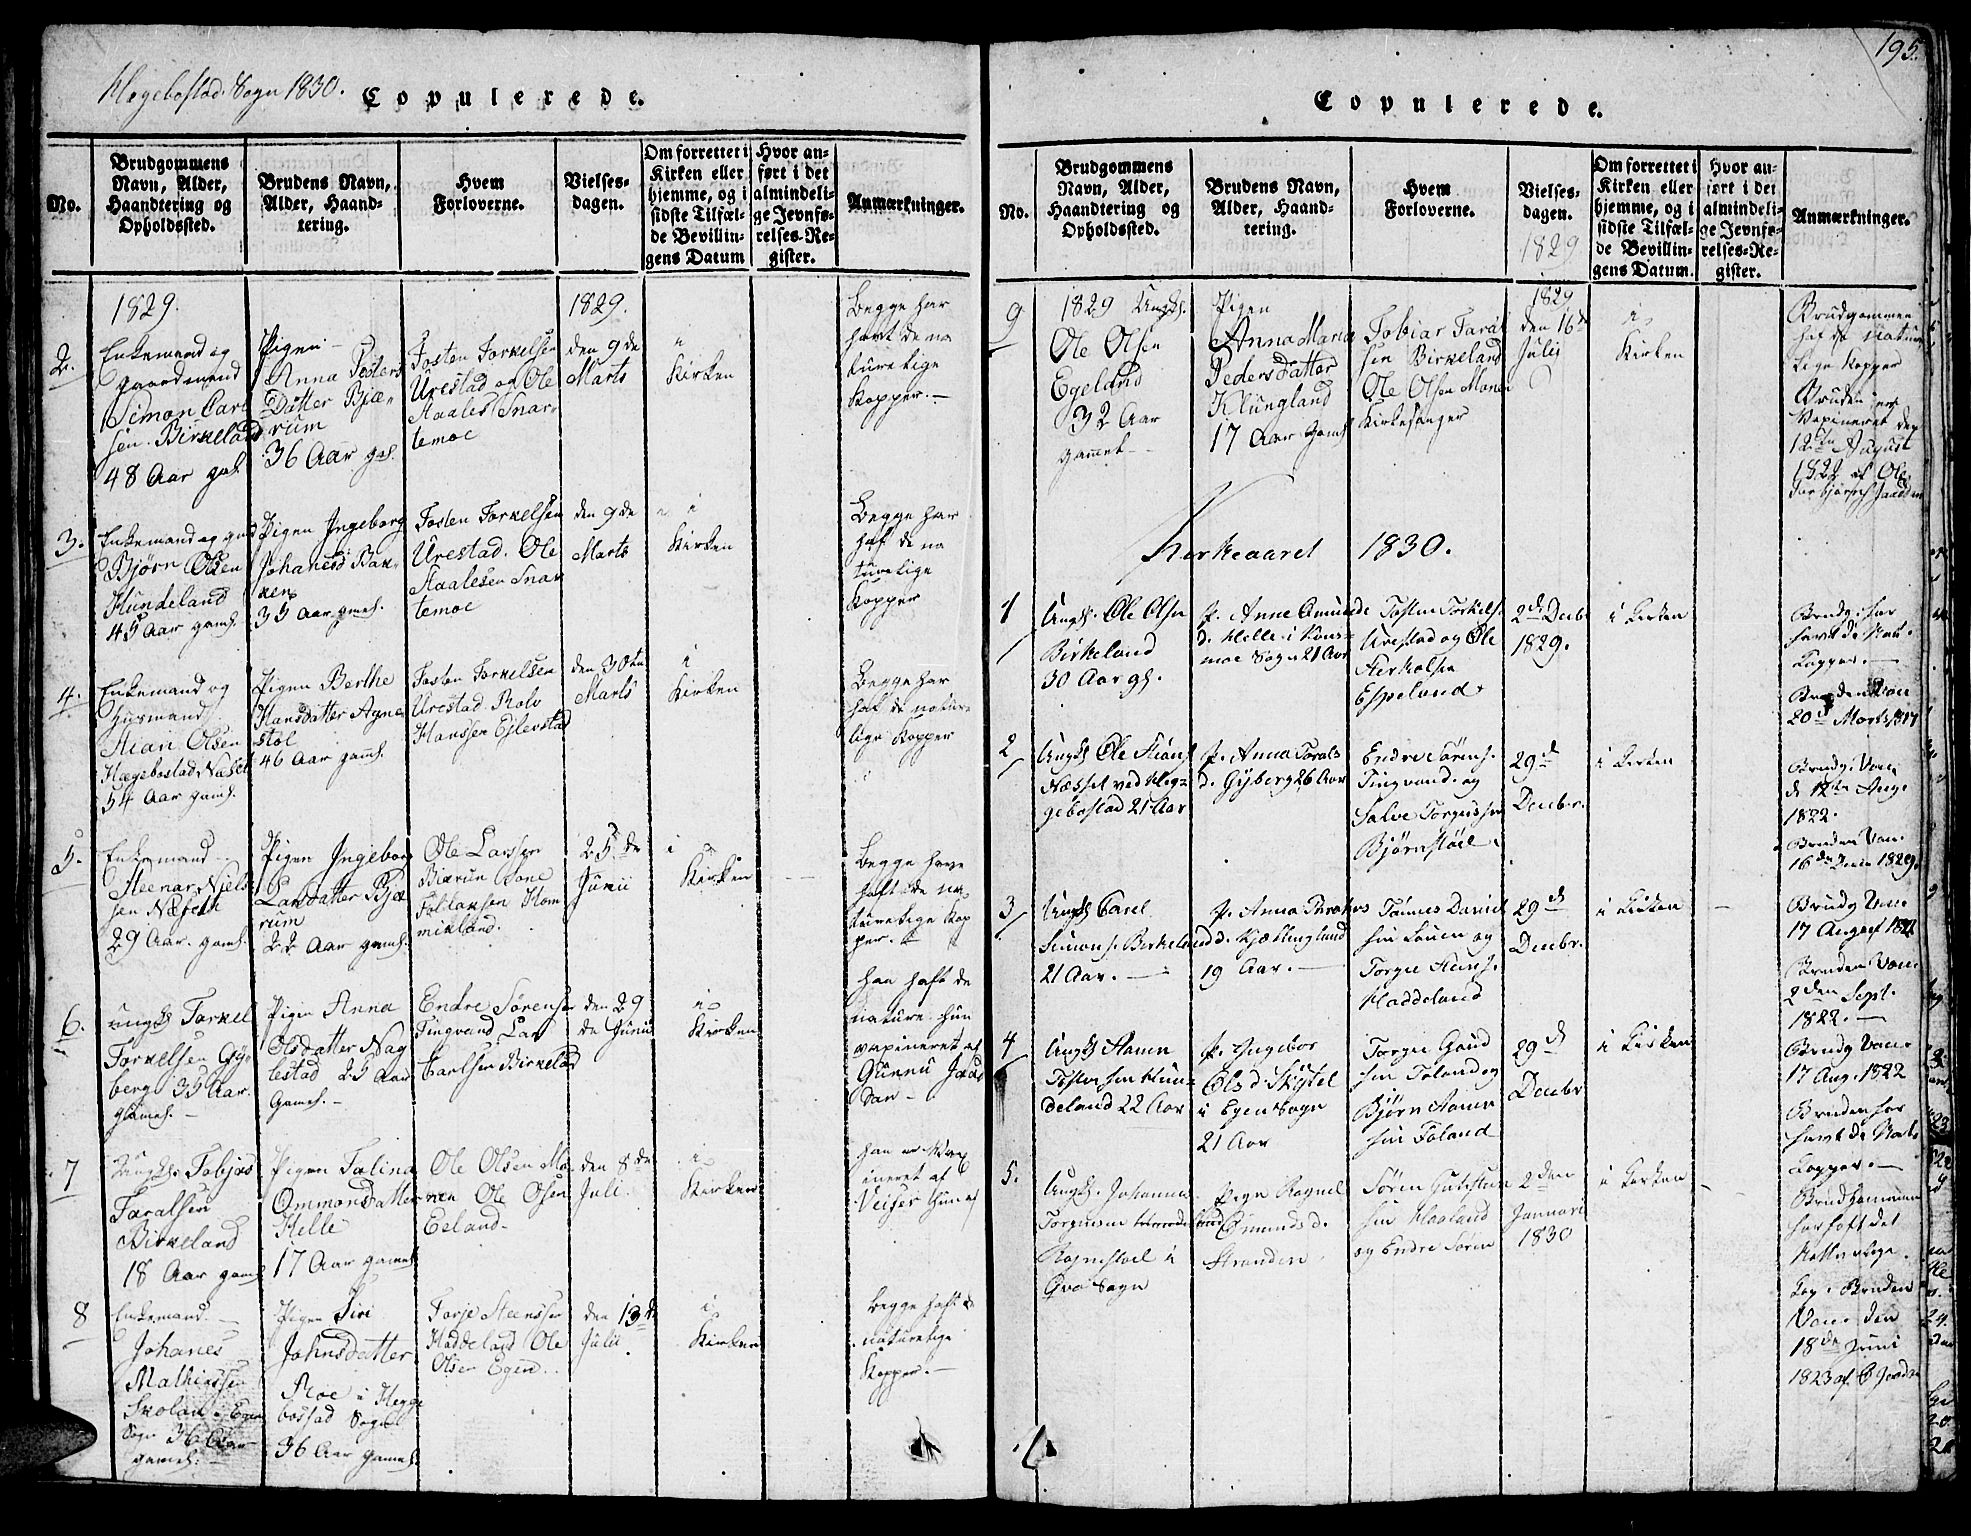 Hægebostad Sogn 1830.
Copulerede.
No.
Brudgommens
Navn, Alder,
Haandtering og
Opholdssted.
Brudens Navn,
Alder, Haand-
tering.
Hvem
Forloverne.
Vielses-
dagen.
Om forrettet i
Kirken eller
hjemme, og i
sidste Tilfæl-
de Bevillin-
gens Datum
Hvor an-
ført i det
almindeli-
ge Jevnfø-
relses-Re-
gister.
Anmærkninger.
1829.
1829.
2.
Enkemand og
gaardmand
Simon Carl
sen Birkeland
48 Aar gal.
Pigen
Anna Tosters
Datter Biæ-
rum
36 Aar gal.
Tosten Torkelsen
Urestad og Ole
Staalesen Snar-
temoe
den 9de
Marts
i
Kirken
Begge har
havt de na
turelige
Kopper.
3.
Enkemand og
Bjørn Olsen
Hundeland
45 Aar gamel.
Pigen Ingeborg
Johanesd Bak-
ken
35 Aar gamel.
Tosten Torkelsen
Urestad. Ole
Staalesen Snar
temoe
den 9de
Marts
i
Kirken
Begge har
haft de na
turelige
Kopper
4.
Enkemand og
Husmand
Stian Olsen
Hægebostad Næset
54 Aar gamel.
Pigen Berthe
Hansdatter Agne
støl
46 Aar gamel.
Tosten Torkelsen
Urestad Rolv
Hanssen Eilevstad
den 30te
Marts
i
Kirken
Begge har
haft de nature
lige Kopper
5.
Enkemand
Steenar Niels
sen
29 Aar gamel.
Pigen Ingeborg
Larsdatter Bjæ
rum
22 Aar gamel.
Ole Larssen
Biærum Tone
Kom
mikland.
25de
Junii
i
Kirken
Begge have
haft de na
turelige Kop
per.
6.
ungk Torkel
Torkelsen Gy-
berg 35 Aar
gamel.
Pigen Anna
Olsdatter Nag
lestad 25 Aar
Gamel.
Endre Sørensen
Tingvand Lar
Carlsen Birkeland
den 29
de Junii
i
Kirken
han haft de
nature. hun
vaxineret af
7
Ungk. Tobias
Taralsen
Birkeland
18 Aar gamel
Pigen Talina
Ommonsdatter
Helle
17 Aar gamel
Ole Olsen Mo
nen Ole Olsen
Eeland
den 8de
Juli.
i
Kirken
han er vax
ineret af
8
Enkemand.
Johanes
Mathiassen
Skolan i Egen
Sogn 36 Aar
gamel.
Pigen Siri
Johnsdatter
Moe i Hegge
bostad Sogn
36 Aar gamel.
Torje Steenssen
Haddeland Ole
Olsen Egen
den 13de
Julii.
i
Kirken
Begge haft de
naturelige
Kopper.
195.
Copulerede.
No.
Brudgommens
Navn, Alder,
Haandtering og
Opholdssted.
Brudens Navn,
Alder, Haand-
tering.
Hvem
Forloverne.
Vielses-
dagen.
1829
Om forrettet i
Kirken eller
hjemme, og i
sidste Tilfæl-
de Bevillin-
gens Datum.
Hvor an-
ført i det
almindeli-
ge Jevnfø-
relses-Re-
gister.
Anmærkninger.
9
1829 Ungk.
Ole Olsen
Egeland
32 Aar
gamel
Pigen
Anna Maria
Peders Datter
Klungland
17 Aar gamel
Tobias Taral
sen Birkeland
Ole Olsen Monen
Kirkesanger
1829
den 16de
Julij
i
Kirken
Brudgommen
haft de natur
lige Kopper
Bruden er
Vaxineret den
12te August
1822 af Ole
Kirkeaaret 1830.
1
Ungk. Ole Olsen
Birkeland
30 Aar gl.
P. Anne Omunds
d. Helle i Kons-
moe Sogn 21 Aar
Tosten Torkels.
Urestad og Ole
Espeland
2den Decbr
1829.
i Kirken
Brudg. har
havt de Nat.
Kopper.
Bruden Vac.
20de Marts
2
Ungk Ole Stians.
Næsset ved Heg-
gebostad 21 Aar
P. Anna Torals
d. Gyberg 26 Aar
Endre Sørens.
Tingvand. og
Salve Torgussen
Bjørnstøel.
29de
Decbr.
i Kirken
Brudg. Vac.
d. 12te Aug.
1822.
Bruden Vac.
16de Junii 1829.
3
Ungk Carel
Simons. Birkeland
21 Aar.
P. Anna
d. Kjællingland
19 Aar.
Tønnes Daniel
sen og
Torgie Stens.
Haddeland
29de
Decbr.
i Kirken
Brudg Vac.
17 August 1822
Bruden Vac.
2den Sept.
1822.
4
Ungk Aamen
Tostensen Hun-
deland 22 Aar
P. Ingebor
Olsd. Skijtel
i Egen Sogn
21 Aar
Torgie Gaud
sen Foland og
Bjørn Aamen
sen Foland
29de
Decbr
i Kirken
Brudg Vac.
17 Aug. 1822
Bruden har
havt de Nat.
Kopper.
5.
Ungk. Johannes
Torgiusen
Rognestøel i
Qvas Sogn
Pigen Ragnel
Omundsd.
Stranden
Søren Guttorm
sen Haaland
og Endre Søren
2den
Januari
1830
i Kirken
Brudgommen
har haft det
Naturlige
Kop. Bruden
Vac. den
18de Juni
1823 af